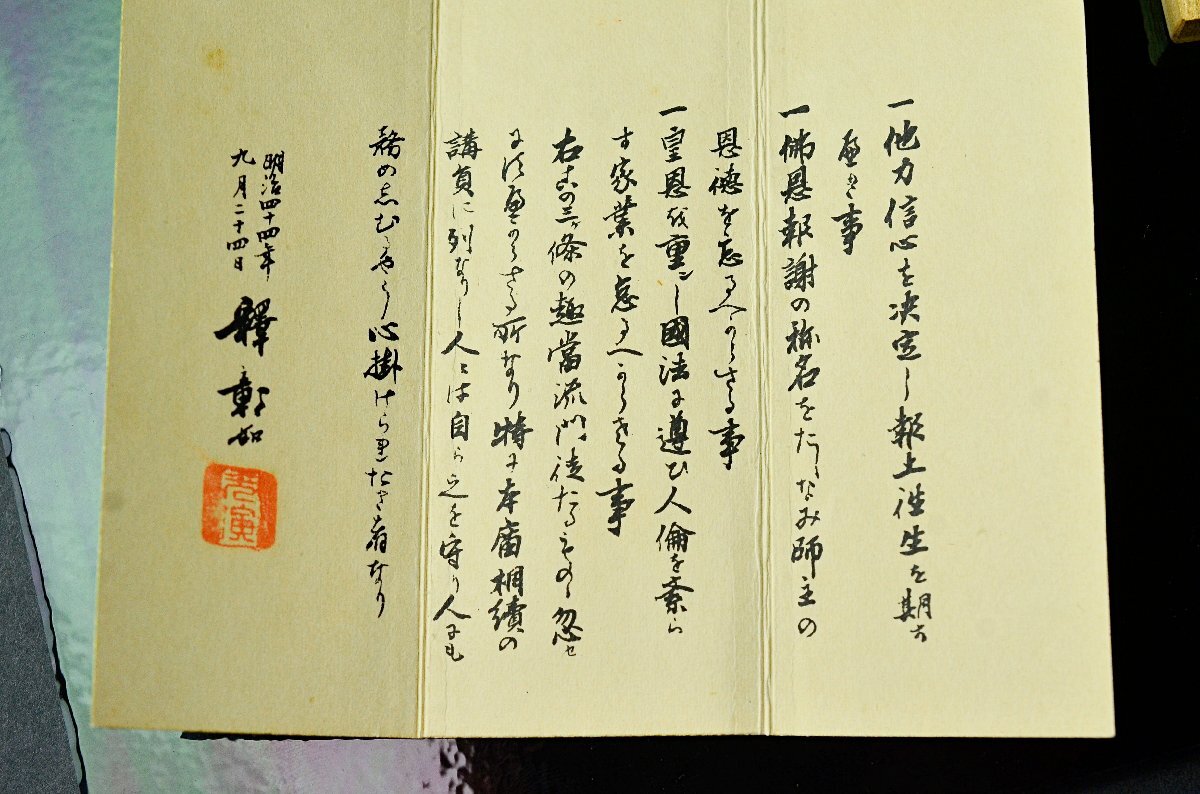 一他力信心を決定し報土往生を期す
へき事
一佛恩報謝の称名をたしなみ師主の
恩徳を忘るへからさる事
一皇恩を重ンし國法に遵ひ人倫を紊ら
す家業を怠るへからさる事
右この三ヶ條の趣當流門徒たるもの忽せ
にすへからさる所なり特に本廟相續の
講員に列なりし人々は自ら之を守り人にも
務めしむるやう心掛けらるたき者なり
明治四十四年
九月二十四日
釋彰如